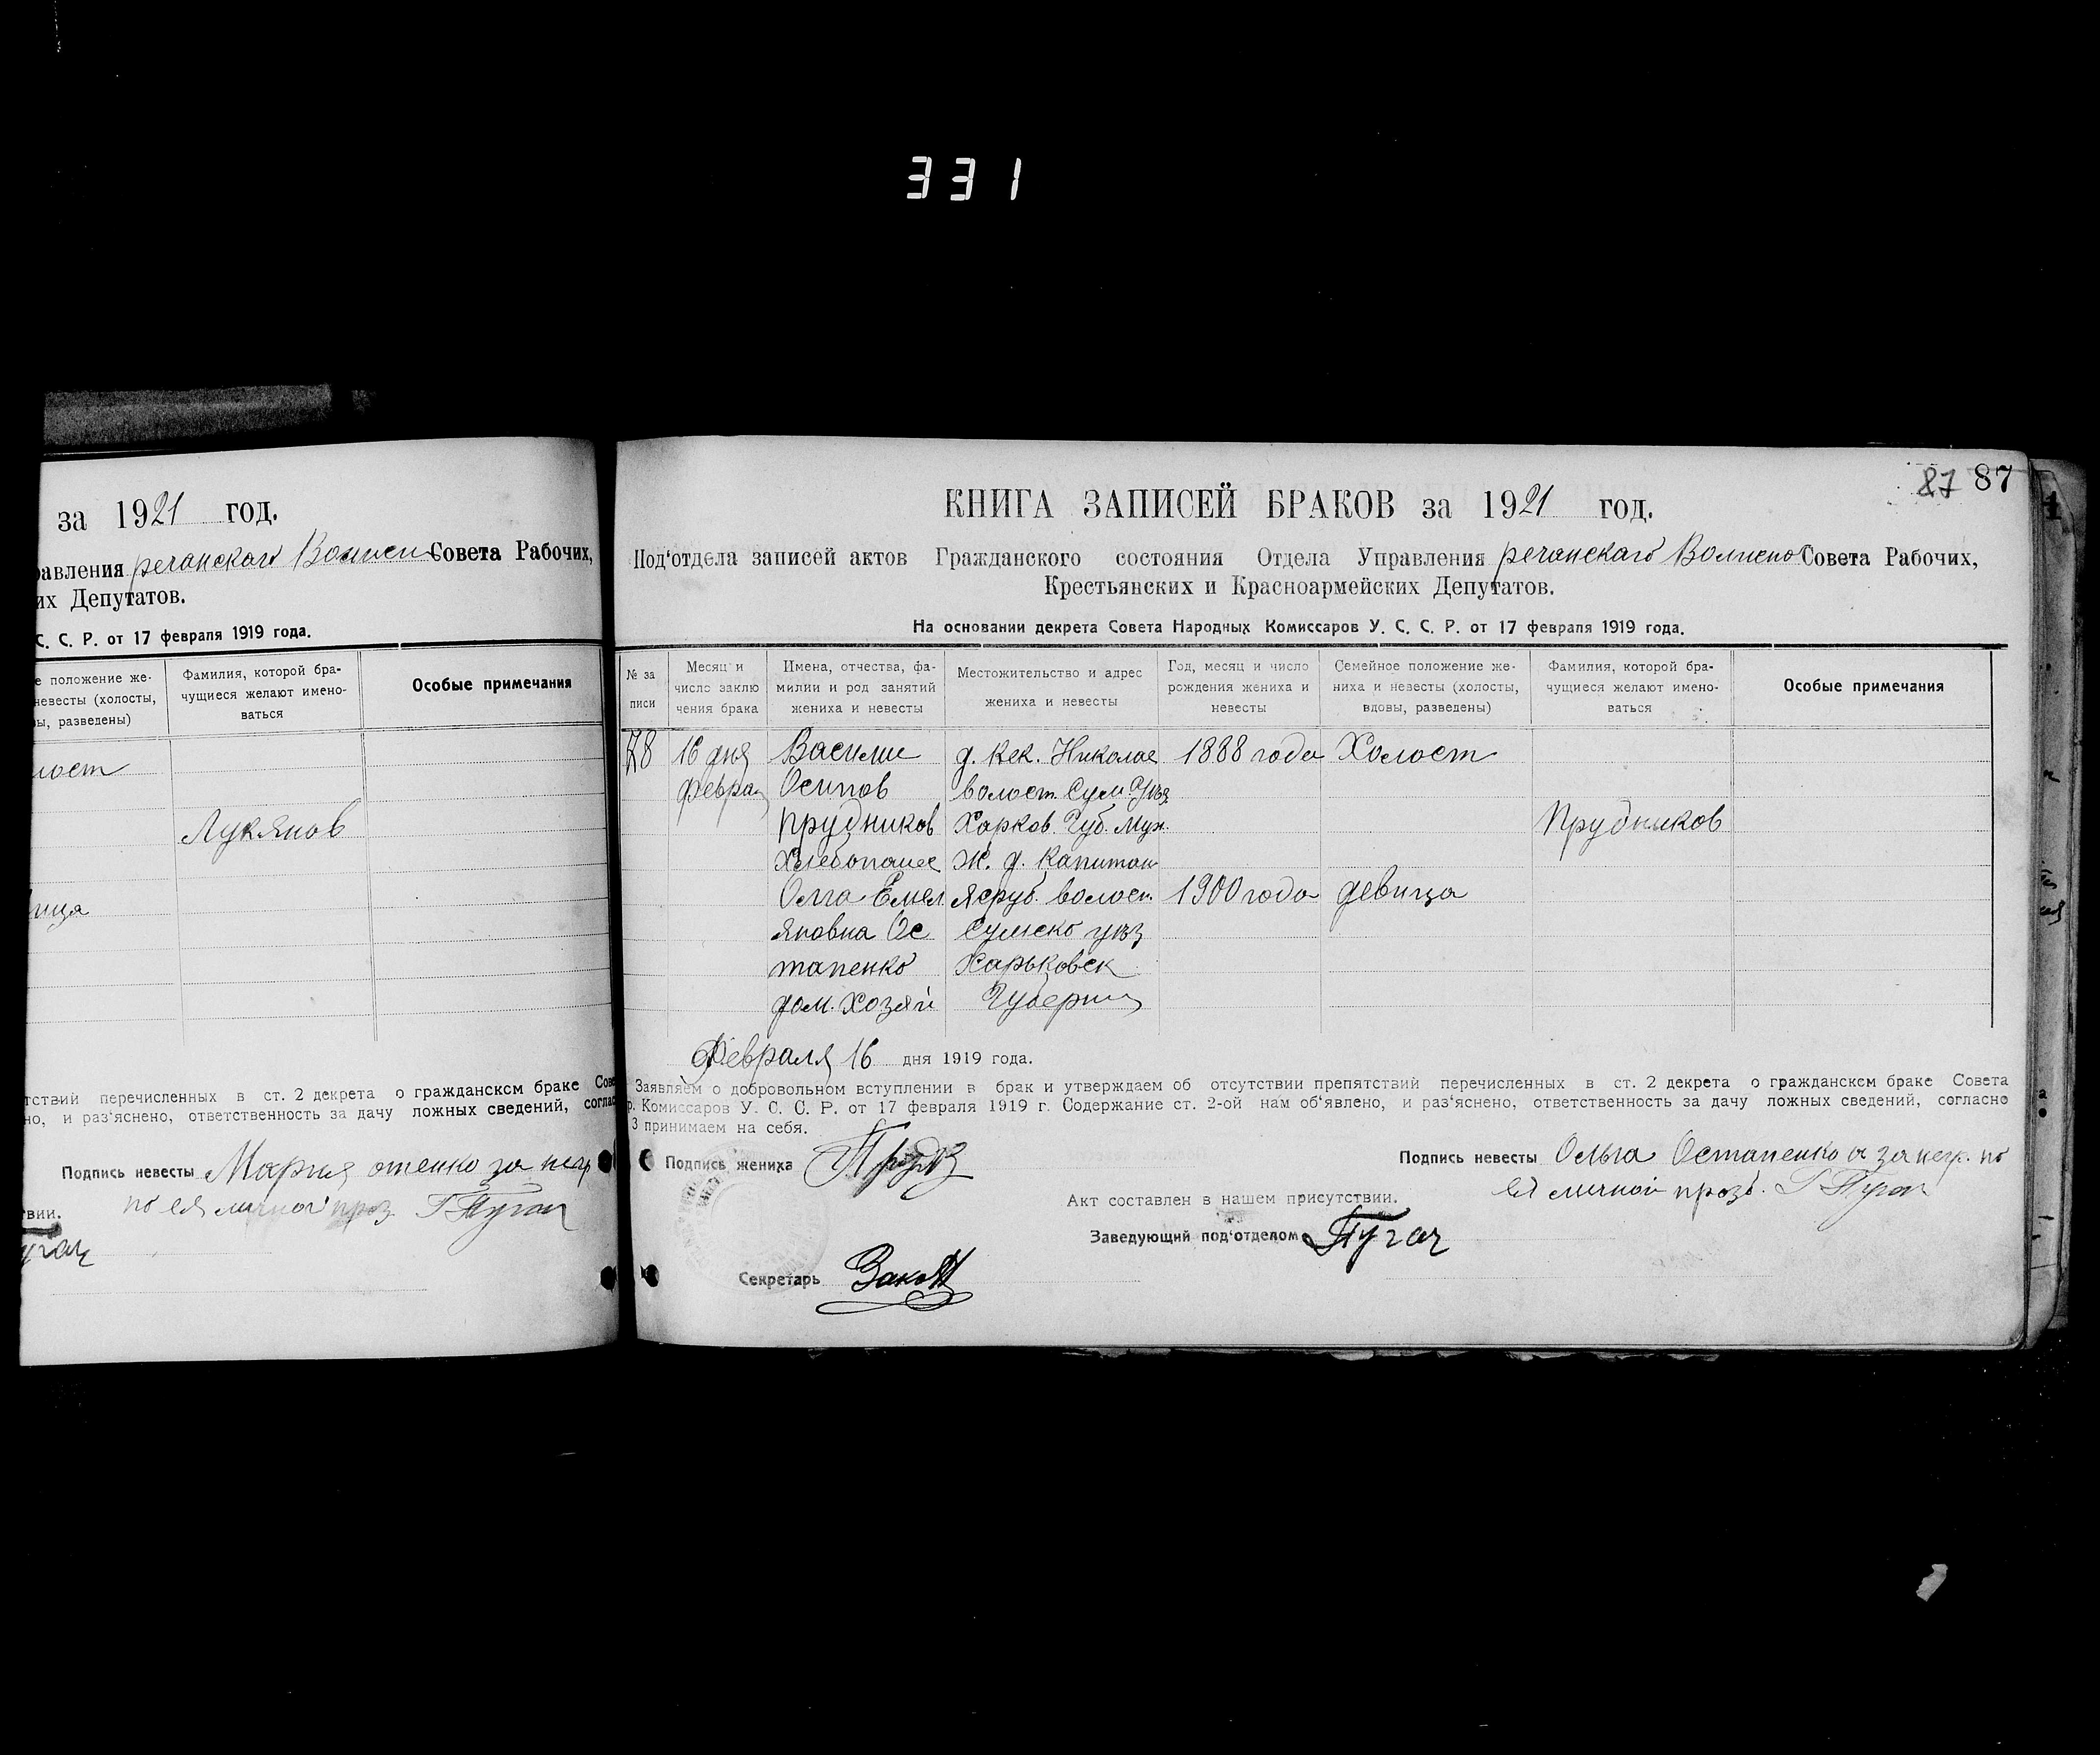 331
за 1921 год.
равления речанскаго Волисп Совета Рабочих,
их Депутатов.
С. С. Р. от 17 февраля 1919 года.
е положение же-
невесты (холосты,
вы, разведены)
Фамилия, которой бра-
чущиеся желают имено-
ваться
Особые примечания
лост
Лукянов
вица
тствий перечисленных в ст. 2 декрета о гражданском браке Сове
но, и раз‘яснено, ответственность за дачу ложных сведений, соглас
Подпись невесты Мария отенко за негр
по ея личной прoз Г Пугач
твии.
угач
87 87
КНИГА ЗАПИСЕЙ БРАКОВ за 1921 год.
Под‘отдела записей актов Гражданского состояния Отдела Управления речанскаго Волиспо Совета Рабочих,
Крестьянских и Красноармейских Депутатов.
На основании декрета Совета Народных Комиссаров У. С. С. Р. от 17 февраля 1919 года.
№ за
писи
Месяц и
число заклю
чения брака
Имена, отчества, фа-
милии и род занятий
жениха и невесты
Местожительство и адрес
жениха и невесты
Год, месяц и число
рождения жениха и
невесты
Семейное положение же-
ниха и невесты (холосты,
вдовы, разведены)
Фамилия, которой бра-
чущиеся желают имено-
ваться
Особые примечания
78 16 дня Васили д. Кек. Николае 1888 года Холост
Феврал Осипов волост. Сум. Уез
Прудников Харков. Губ. Муж. Прудников
Хлебопашес Ж. д. Капитан
Олга Емел Яструб. волост. 1900 года девица
яновна Ос Сумско уез
тапенко Харьковск
дом. хозяй Губерни
Февраля 16 дня 1919 года.
Заявляем о добровольном вступлении в брак и утверждаем об отсутствии препятствий перечисленных в ст. 2 декрета о гражданском браке Совета
р. Комиссаров У. С. С. Р. от 17 февраля 1919 г. Содержание ст. 2-ой нам об‘явлено, и раз‘яснено, ответственность за дачу ложных сведений, согласно
3 принимаем на себя.
Подпись жениха Подпись невесты Ольга Остапенко а за негр. по
ея личной прозь. Г Пугач
Акт составлен в нашем присутствии.
Заведующий под‘отделом Пугач
Секретарь